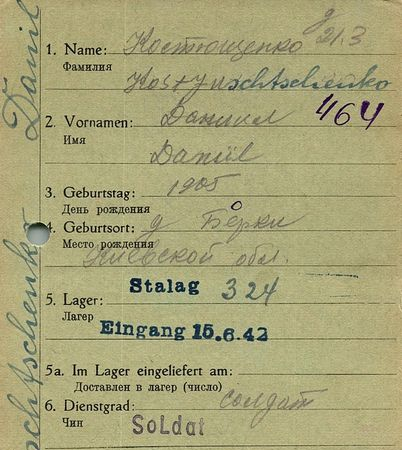 g 21.3
1. Name: Костющенко
Фамилия
Kostjuschtschenko
2. Vornamen: Даниил 464
Имя
Daniil
3. Geburtstag: 1905
День рождения
4. Geburtsort: д Берки
Место рождения Киевской обл.
5. Lager: Stalag 324
Лагер
Eingang 15.6.42
5a. Im Lager eingeliefert am:
Доставлен в лагер (число)
6. Dienstgrad: солдат
Чин Soldat
Daniil
schtschenko